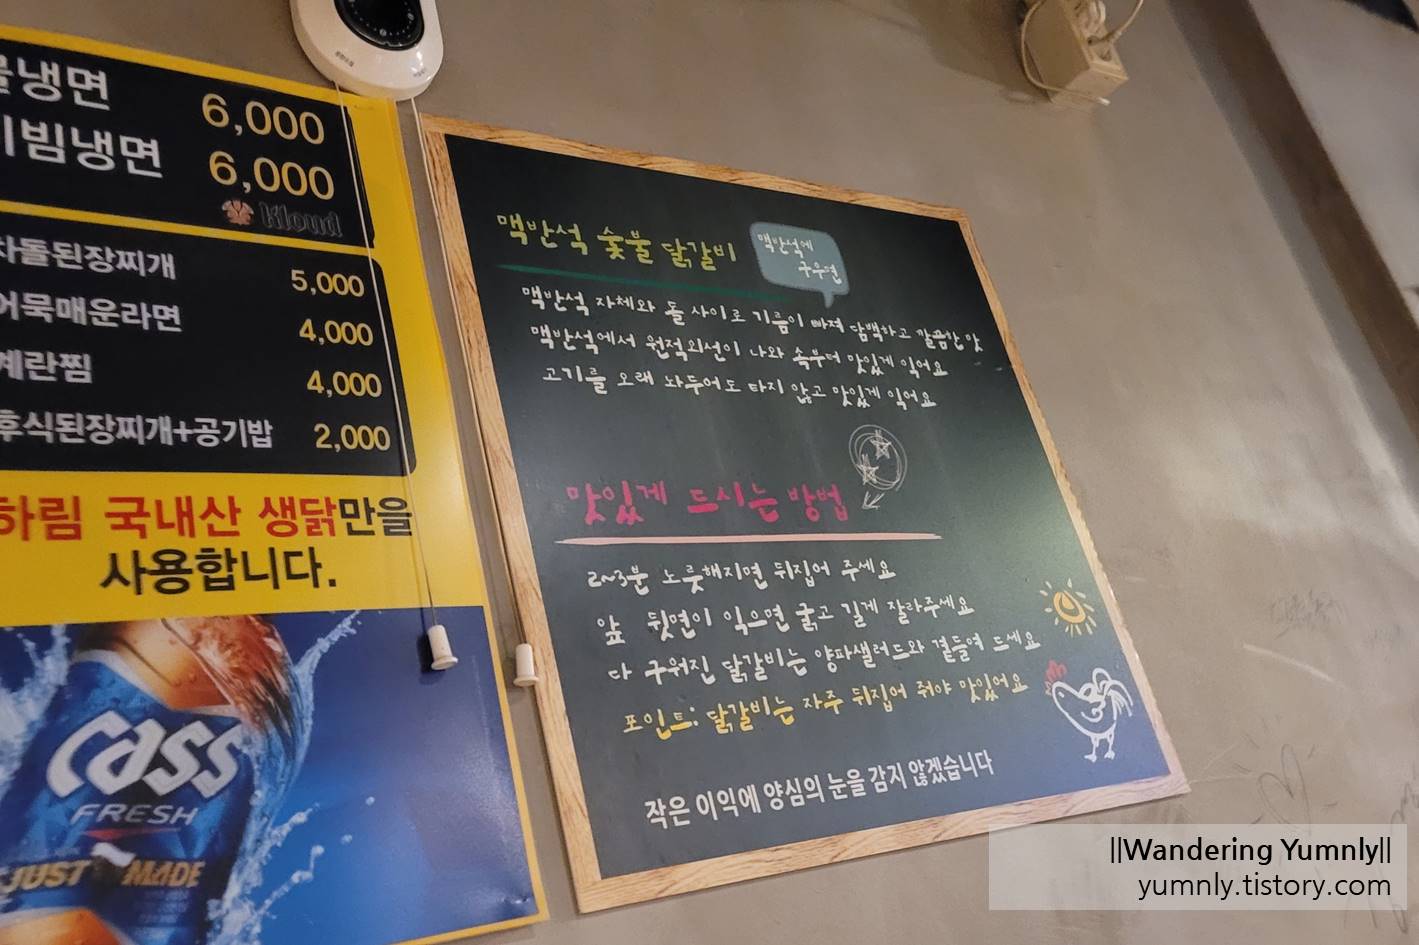 물냉면 6,000
비빔냉면 6,000
Kloud
차돌된장찌개 5,000
어묵매운라면 4,000
계란찜 4,000
후식된장찌개+공기밥 2,000
하림 국내산 생닭만을
사용합니다.
Cass
FRESH
JUST MADE
맥반석 숯불 닭갈비
맥반석에
구우면
맥반석 자체와 돌 사이로 기름이 빠져 담백하고 깔끔한 맛
맥반석에서 원적외선이 나와 속부터 맛있게 익어요
고기를 오래 놔두어도 타지 않고 맛있게 익어요
맛있게 드시는 방법
2~3분 노릇해지면 뒤집어 주세요
앞 뒷면이 익으면 굵고 길게 잘라주세요
다 구워진 닭갈비는 양파샐러드와 곁들여 드세요
포인트: 닭갈비는 자주 뒤집어 줘야 맛있어요
작은 이익에 양심의 눈을 감지 않겠습니다
||Wandering Yumnly||
yumnly.tistory.com